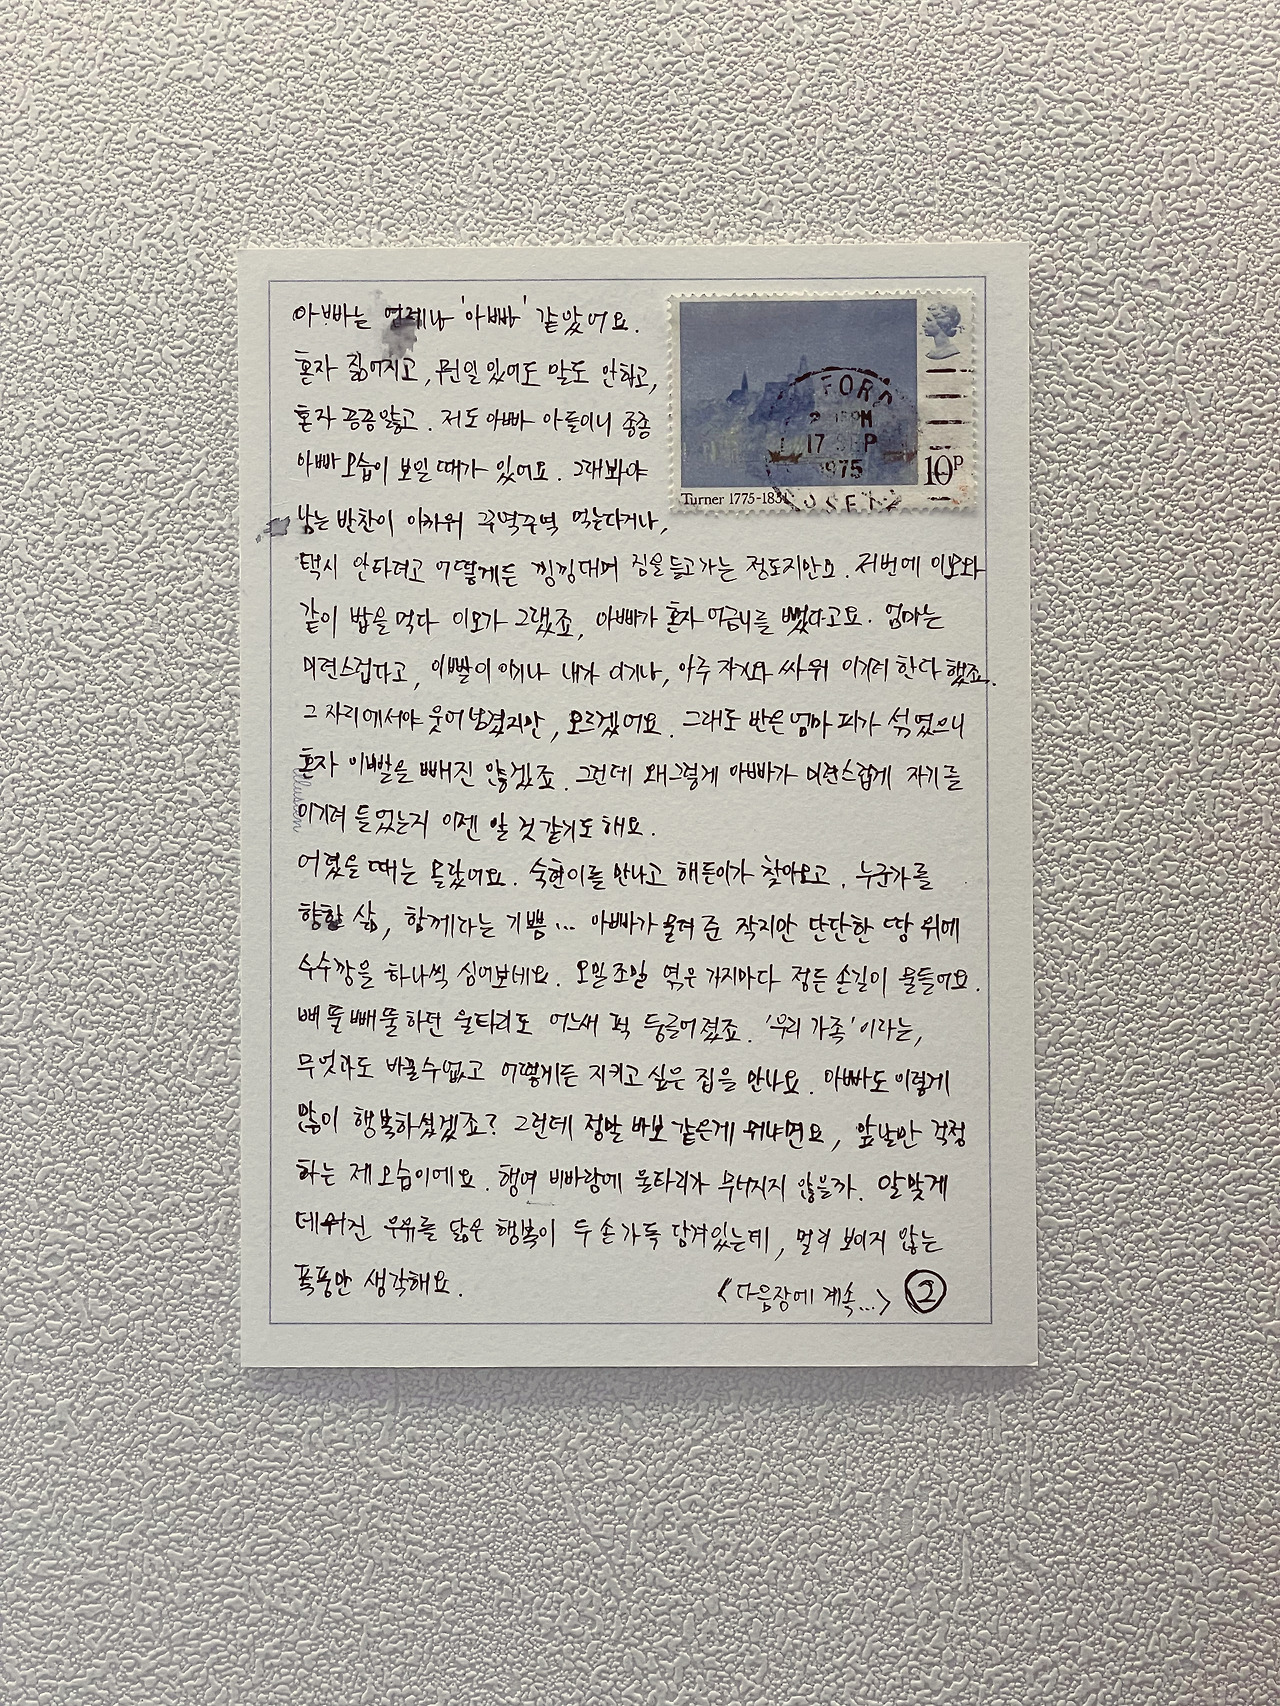 아빠는 언제나 '아빠' 같았어요.
혼자 짊어지고, 뭔일 있어도 말도 안하고,
혼자 끙끙앓고. 저도 아빠 아들이니 종종
아빠모습이 보일 때가 있어요. 그래봐야
남는 반찬이 아까워 꾸역꾸역 먹는다거나,
택시 안타려고 어떻게든 낑낑대며 짐을 들고가는 정도지만요. 저번에 이모와
같이 밥을 먹다 이모가 그랬죠, 아빠가 혼자 어금니를 뺐다고요. 엄마는
미련스럽다고, 이빨이 이기나 내가 이기나, 아주 자기와 싸워 이기려 한다 했죠.
그 자리에서야 웃어 넘겼지만, 모르겠어요. 그래도 반은 엄마 피가 섞였으니
혼자 이빨을 빼진 않겠죠. 그런데 왜그렇게 아빠가 미련스럽게 자기를
이기려 들었는지 이젠 알 것 같기도 해요.
어렸을 때는 몰랐어요. 숙현이를 만나고 해든이가 찾아오고. 누군가를
향한 삶, 함께라는 기쁨... 아빠가 물려준 작지만 단단한 땅 위에
수수깡을 하나씩 심어보네요. 오밀조밀 엮은 가지마다 정든 손길이 물들어요.
삐뚤빼뚤하던 울타리도 어느새 퍽 둥글어졌죠. '우리 가족'이라는,
무엇과도 바꿀수없고 어떻게든 지키고 싶은 집을 만나요. 아빠도 이렇게
많이 행복하셨겠죠? 그런데 정말 바보 같은게 뭐냐면요, 앞날만 걱정
하는 제 모습이에요. 행여 비바람에 울타리가 무너지지 않을까. 알맞게
데워진 우유를 닮은 행복이 두 손 가득 담겨있는데, 멀리 보이지 않는
폭풍만 생각해요.
<다음장에 계속...> ②
Turner 1775-1851
10P
FORD
17 SEP
1975